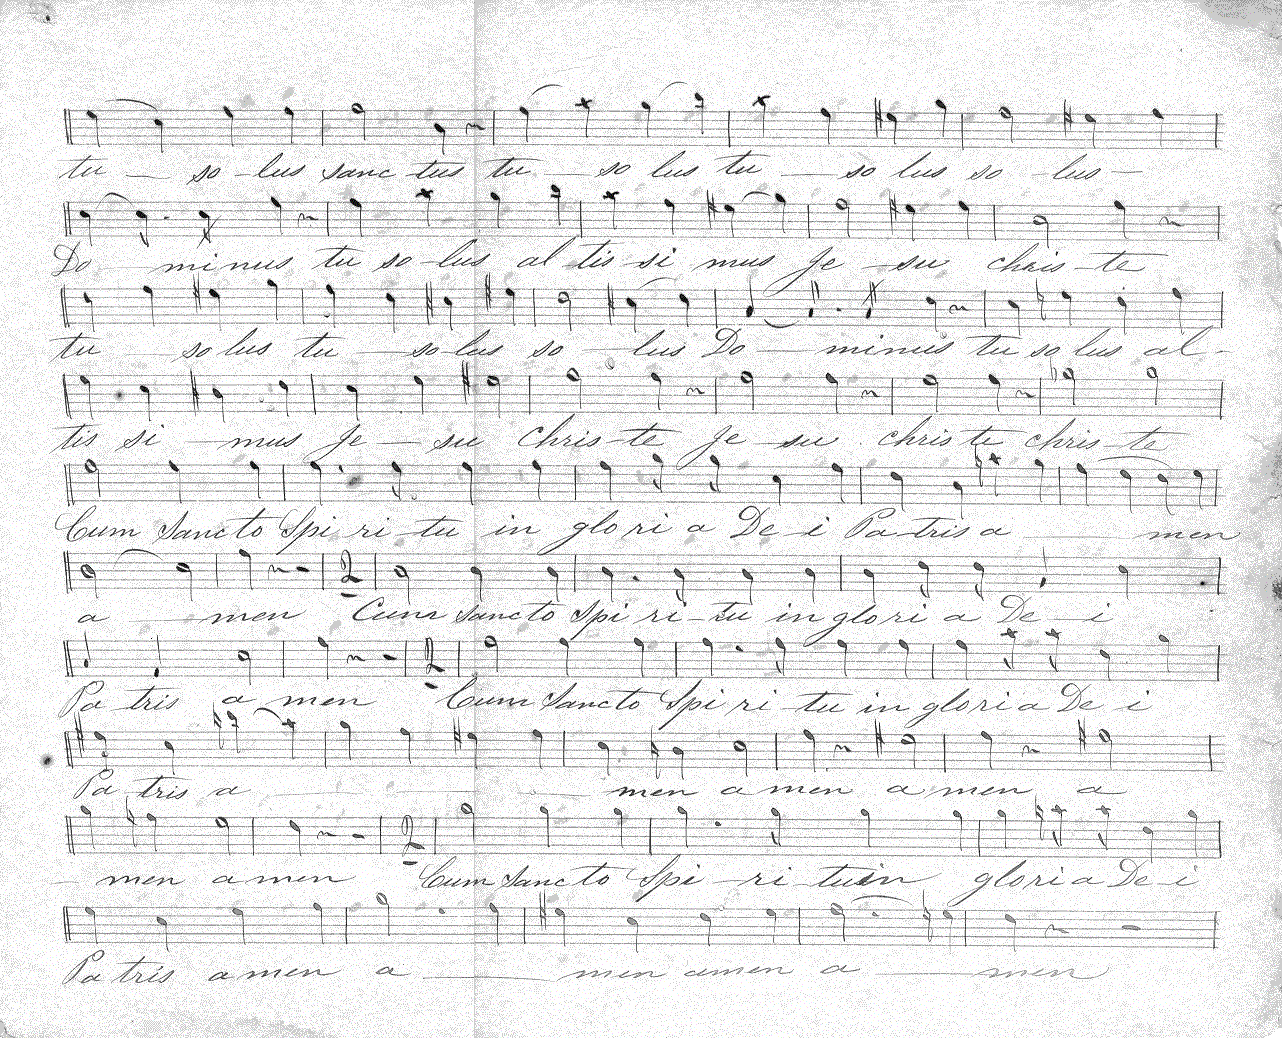 tu — so - lus sanc - tus tu — so lus tu — so lus so - lus —
Do minus tu so - lus al - tis - si mus Je - su chris - te
tu — so lus tu — so - lus so — lus Do — minus tu so lus al -
tis si — mus Je — su Chris - te Je su chris te chris - te
Cum Sancto Spi ri - tu in glo ri a De - i Pa - tris a men
a — men Cum Sancto Spi ri - tu in glori a De - i
Pa tris a men Cum Sancto Spi ri - tu in gloria De i
Pa tris a — men a men a men a
— men a men 2 Cum Sanc to Spi - ri - tu in gloria De - i
Pa tris a men a — men amen a — men